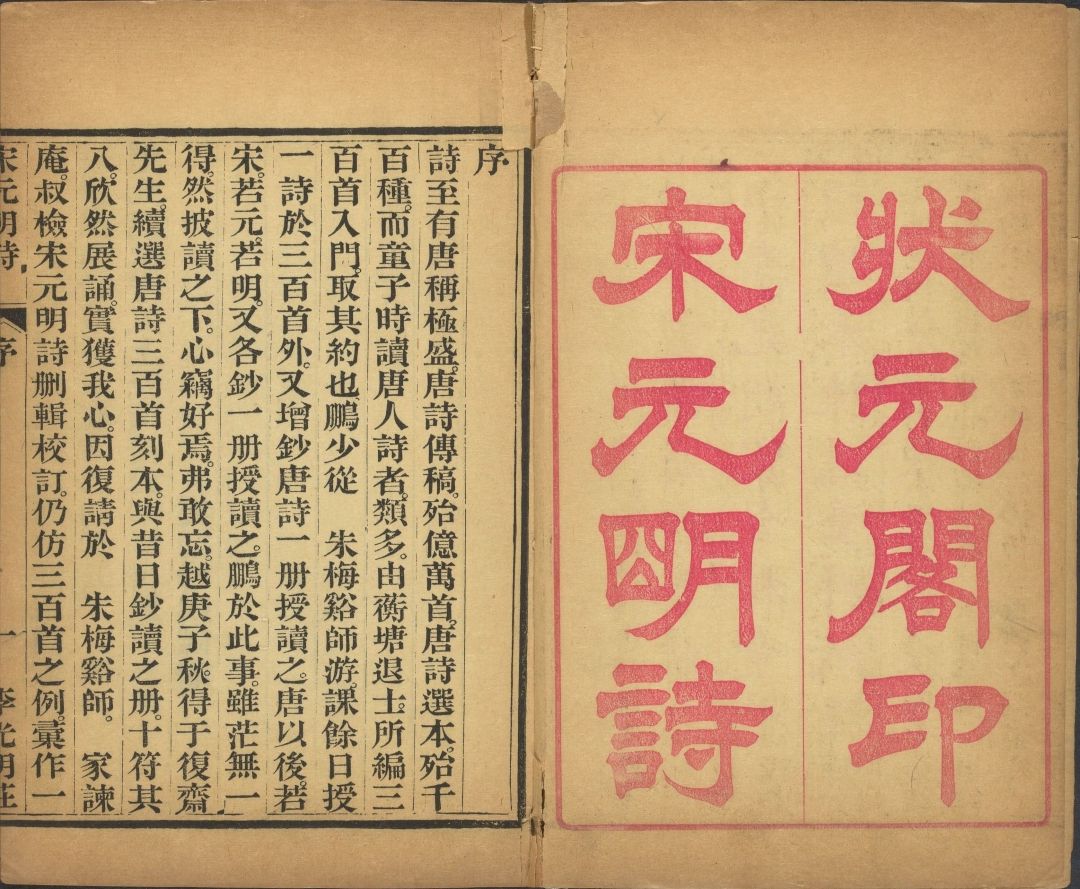 狀元閣印
宋元明詩
序
詩至有唐稱極盛。唐詩傳稿。殆億萬首。唐詩選本。殆千
百種。而童子時讀唐人詩者。類多。由蘅塘退士。所編三
百首入門。取其約也。鵬少從　朱梅谿師游。課餘日授
一詩於三百首外。又增鈔唐詩一册授讀之。唐以後。若
宋。若元。若明。又各鈔一册授讀之。鵬於此事。雖茫無一
得。然披讀之下。心竊好焉。弗敢忘。越庚子秋。得于復齋
先生。續選唐詩三百首刻本。與昔日鈔讀之册。十符其
八。欣然展誦。實獲我心。因復請於　朱梅谿師。　家諫
庵。叔檢宋元明詩删輯校訂。仍仿三百首之例。彙作一
宋元明詩　序　一　李光明莊